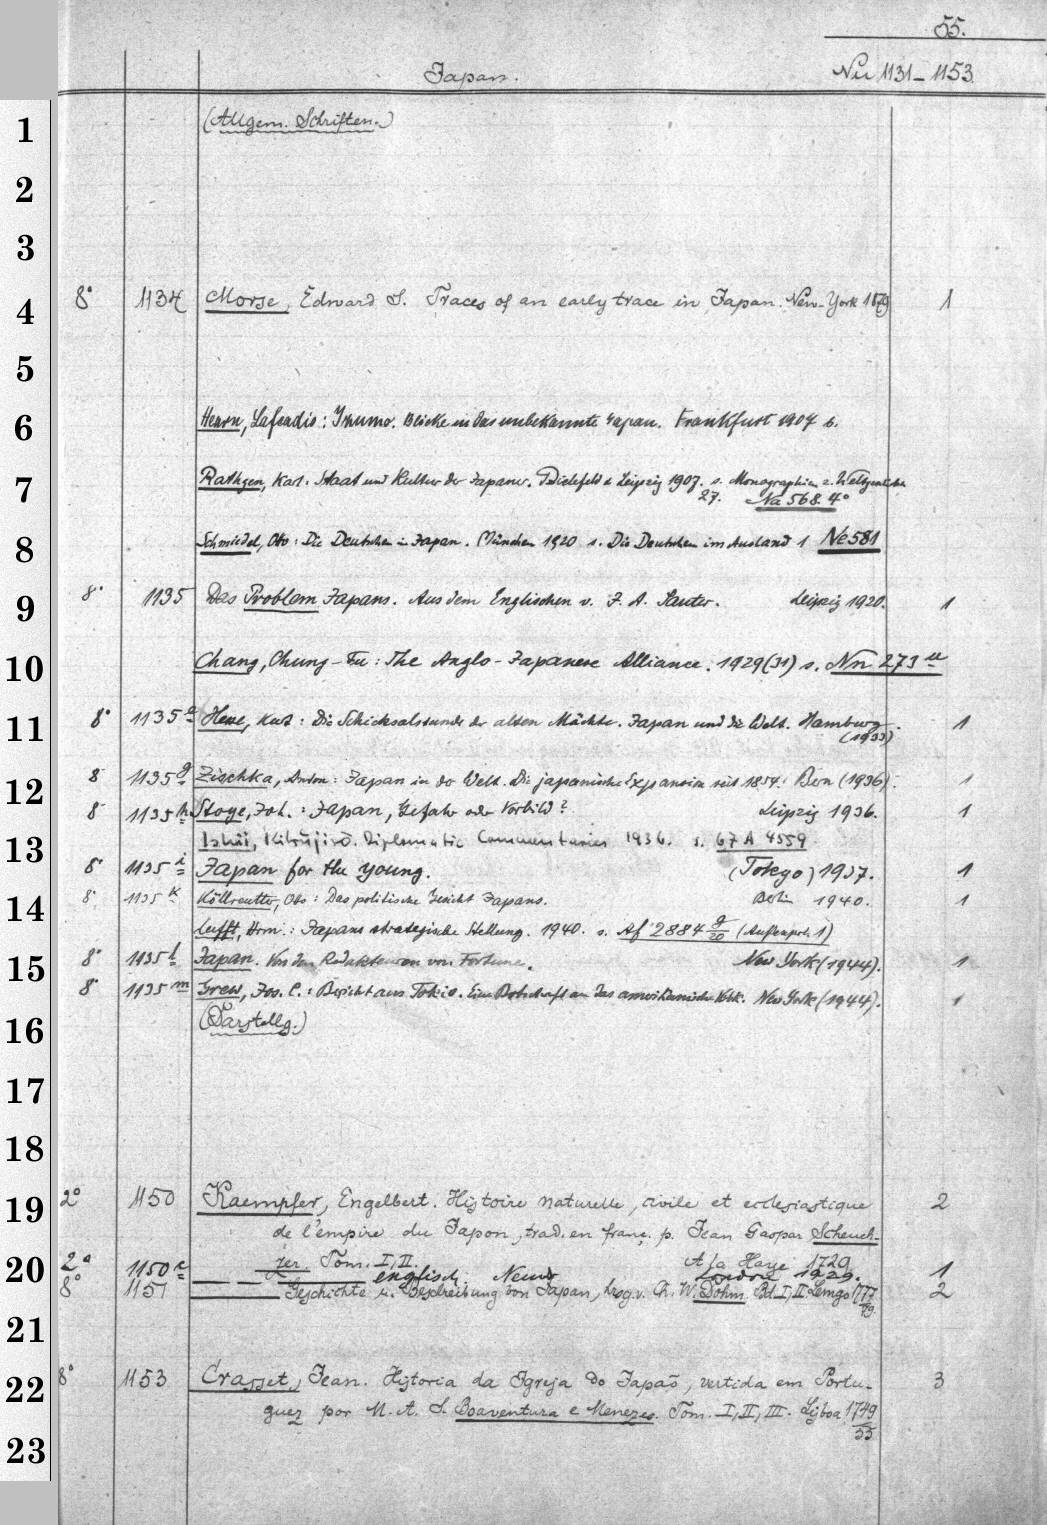 55.
Japan. Nu 1131-1153
1 (Allgem. Schriften.)
2
3
4 8° 1134 Morse, Edward S. Traces of an early trace in Japan. New-York 1879 1
5
6 Hearn, Lafcadio: Izumo. Blicke in das unbekannte Japan. Frankfurt 1907 s.
7 Rathgen, Karl: Staat und Kultur der Japaner. Bielefeld & Leipzig 1907. s. Monographien z. Weltgeschichte
27. Na 568. 4°
8 Schmiedel, Otto: Die Deutschen in Japan. München 1920 s. Die Deutschen im Ausland 1 Ne 581
9 8° 1135 Das Problem Japans. Aus dem Englischen v. F. A. Sauter. Leipzig 1920. 1
10 Chang, Chung-Fu: The Anglo-Japanese Alliance. 1929(31) s. Nn 273
11 8° 1135 a Hesse, Kurt: Die Schicksalsstunde der alten Mächte. Japan und die Welt. Hamburg. 1
(1933)
12 8 1135 g Zischka, Anton: Japan in der Welt. Die japanische Expansion seit 1854. Bern (1936). 1
8 1135 h Stoye, Joh.: Japan, Gefahr oder Vorbild? Leipzig 1936. 1
13 Ishii, Kikujirō. Diplomatic Commentaries 1936. s. 67 A 4559
8° 1135 i Japan for the young. (Tokyo) 1937. 1
14 8° 1135 k Köllreutter, Otto: Das politische Gesicht Japans. Berlin 1940. 1
Lufft, Herm.: Japans strategische Stellung. 1940. s. Af 2884 g/20 (Außenpol. 1)
15 8° 1135 l Japan. Von den Redakteuren von Fortune. New York (1944). 1
8° 1135 m Grew, Jos. C.: Bericht aus Tokio. Eine Botschaft an das amerikanische Volk. New York (1944). 1
16 (Darstellg.)
17
18
19 2° 1150 Kaempfer, Engelbert. Histoire naturelle, civile et eclesiastique 2
de l'empire du Japon, trad. en franç. p. Jean Gaspar Scheuch-
20 zer. Tom. I, II. A la Haye 1729
2° 1150 a — — englisch. London 1929. 1
8° 1151 — Geschichte u. Beschreibung von Japan, hrsg. v. Ch. W. Dohm. Bd. I, II Lemgo 1777/79. 2
21
22 8° 1153 Crasset, Jean. Historia da Igreja do Japaõ, vertida em Portu- 3
guez por M. A. S. Boaventura e Menezes. Tom. I, II, III. Lisboa 1749/55
23